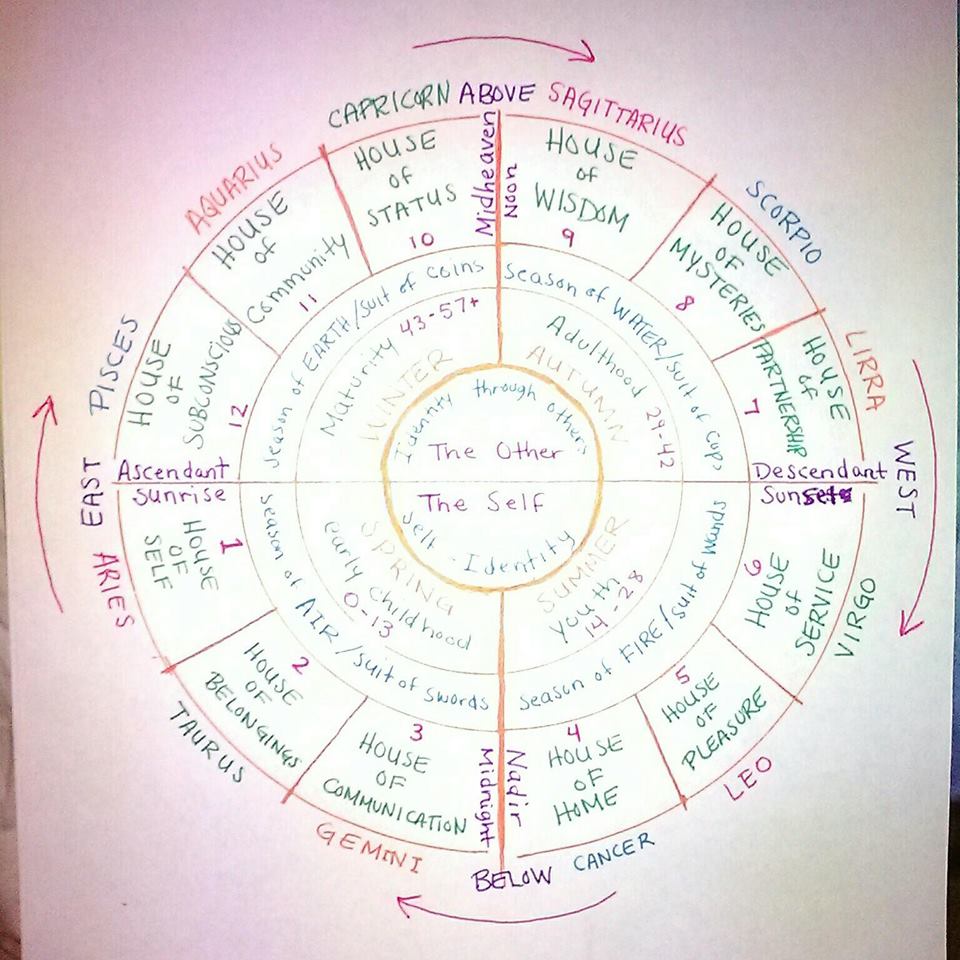 CAPRICORN ABOVE SAGITTARIUS
AQUARIUS
SCORPIO
PISCES
LIRRA
EAST
WEST
ARIES
VIRGO
TAURUS
LEO
GEMINI
CANCER
BELOW
HOUSE
OF
STATUS
10
Midheaven
Noon
HOUSE
OF
WISDOM
9
HOUSE
OF
Community
11
HOUSE
OF
MYSTERIES
8
HOUSE
OF
SUBCONSCIOUS
12
HOUSE
OF
PARTNERSHIP
7
Ascendant
Sunrise
Descendant
Sunset
1
HOUSE
OF
SELF
2
HOUSE
OF
BELONGINGS
3
HOUSE
OF
COMMUNICATION
Midnight
Nadir
4
HOUSE
OF
HOME
5
HOUSE
OF
PLEASURE
HOUSE
OF
SERVICE
Season of EARTH/Suit of Coins
Season of WATER/Suit of Cups
Season of AIR/Suit of Swords
Season of FIRE/Suit of Wands
Maturity 43-57+
WINTER
Adulthood 29-42
AUTUMN
SPRING
early childhood
0-13
SUMMER
youth
14-28
Identity through others
The Other
The Self
Self-Identity